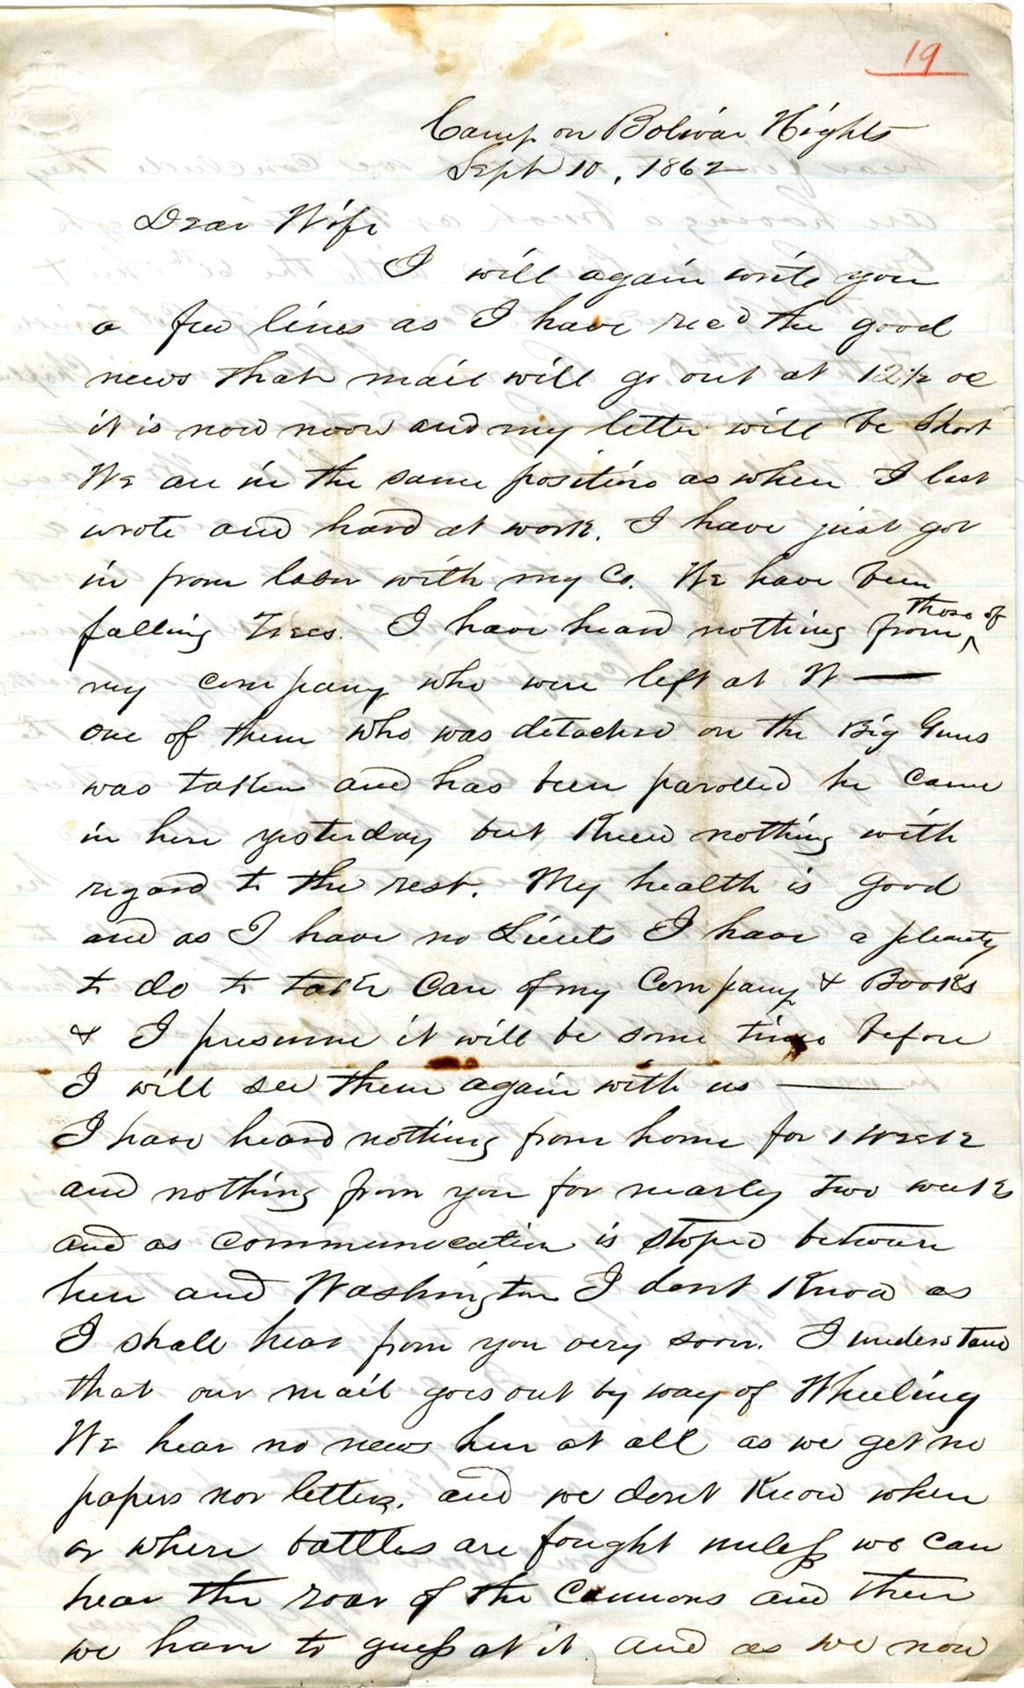 19
Camp on Bolivar Hights
Sept 10, 1862
Dear Wife
I will again write you
a few lines as I have recd the good
news that mail will go out at 12½ oc
it is now noon and my letter will be short
We are in the same position as when I last
wrote and hard at work. I have just got
in from labor with my Co. We have been
falling Trees. I have heard nothing from those of
my company who were left at W—
one of them who was detached on the Big Guns
was taken and has been parolled he came
in here yesterday but knew nothing with
regard to the rest. My health is good
and as I have no Lieuts I have a plenty
to do to take care of my company & Books
& I presume it will be some time before
I will see them again with us —
I have heard nothing from home for 1 week
and nothing from you for nearly two weeks
and as communication is stoped between
here and Washington I dont know as
I shall hear from you very soon. I understand
that our mail goes out by way of Wheeling
We hear no news here at all as we get no
papers nor letters. and we dont know when
or where battles are fought unless we can
hear the roar of the cannons and then
we have to guess at it and as we now